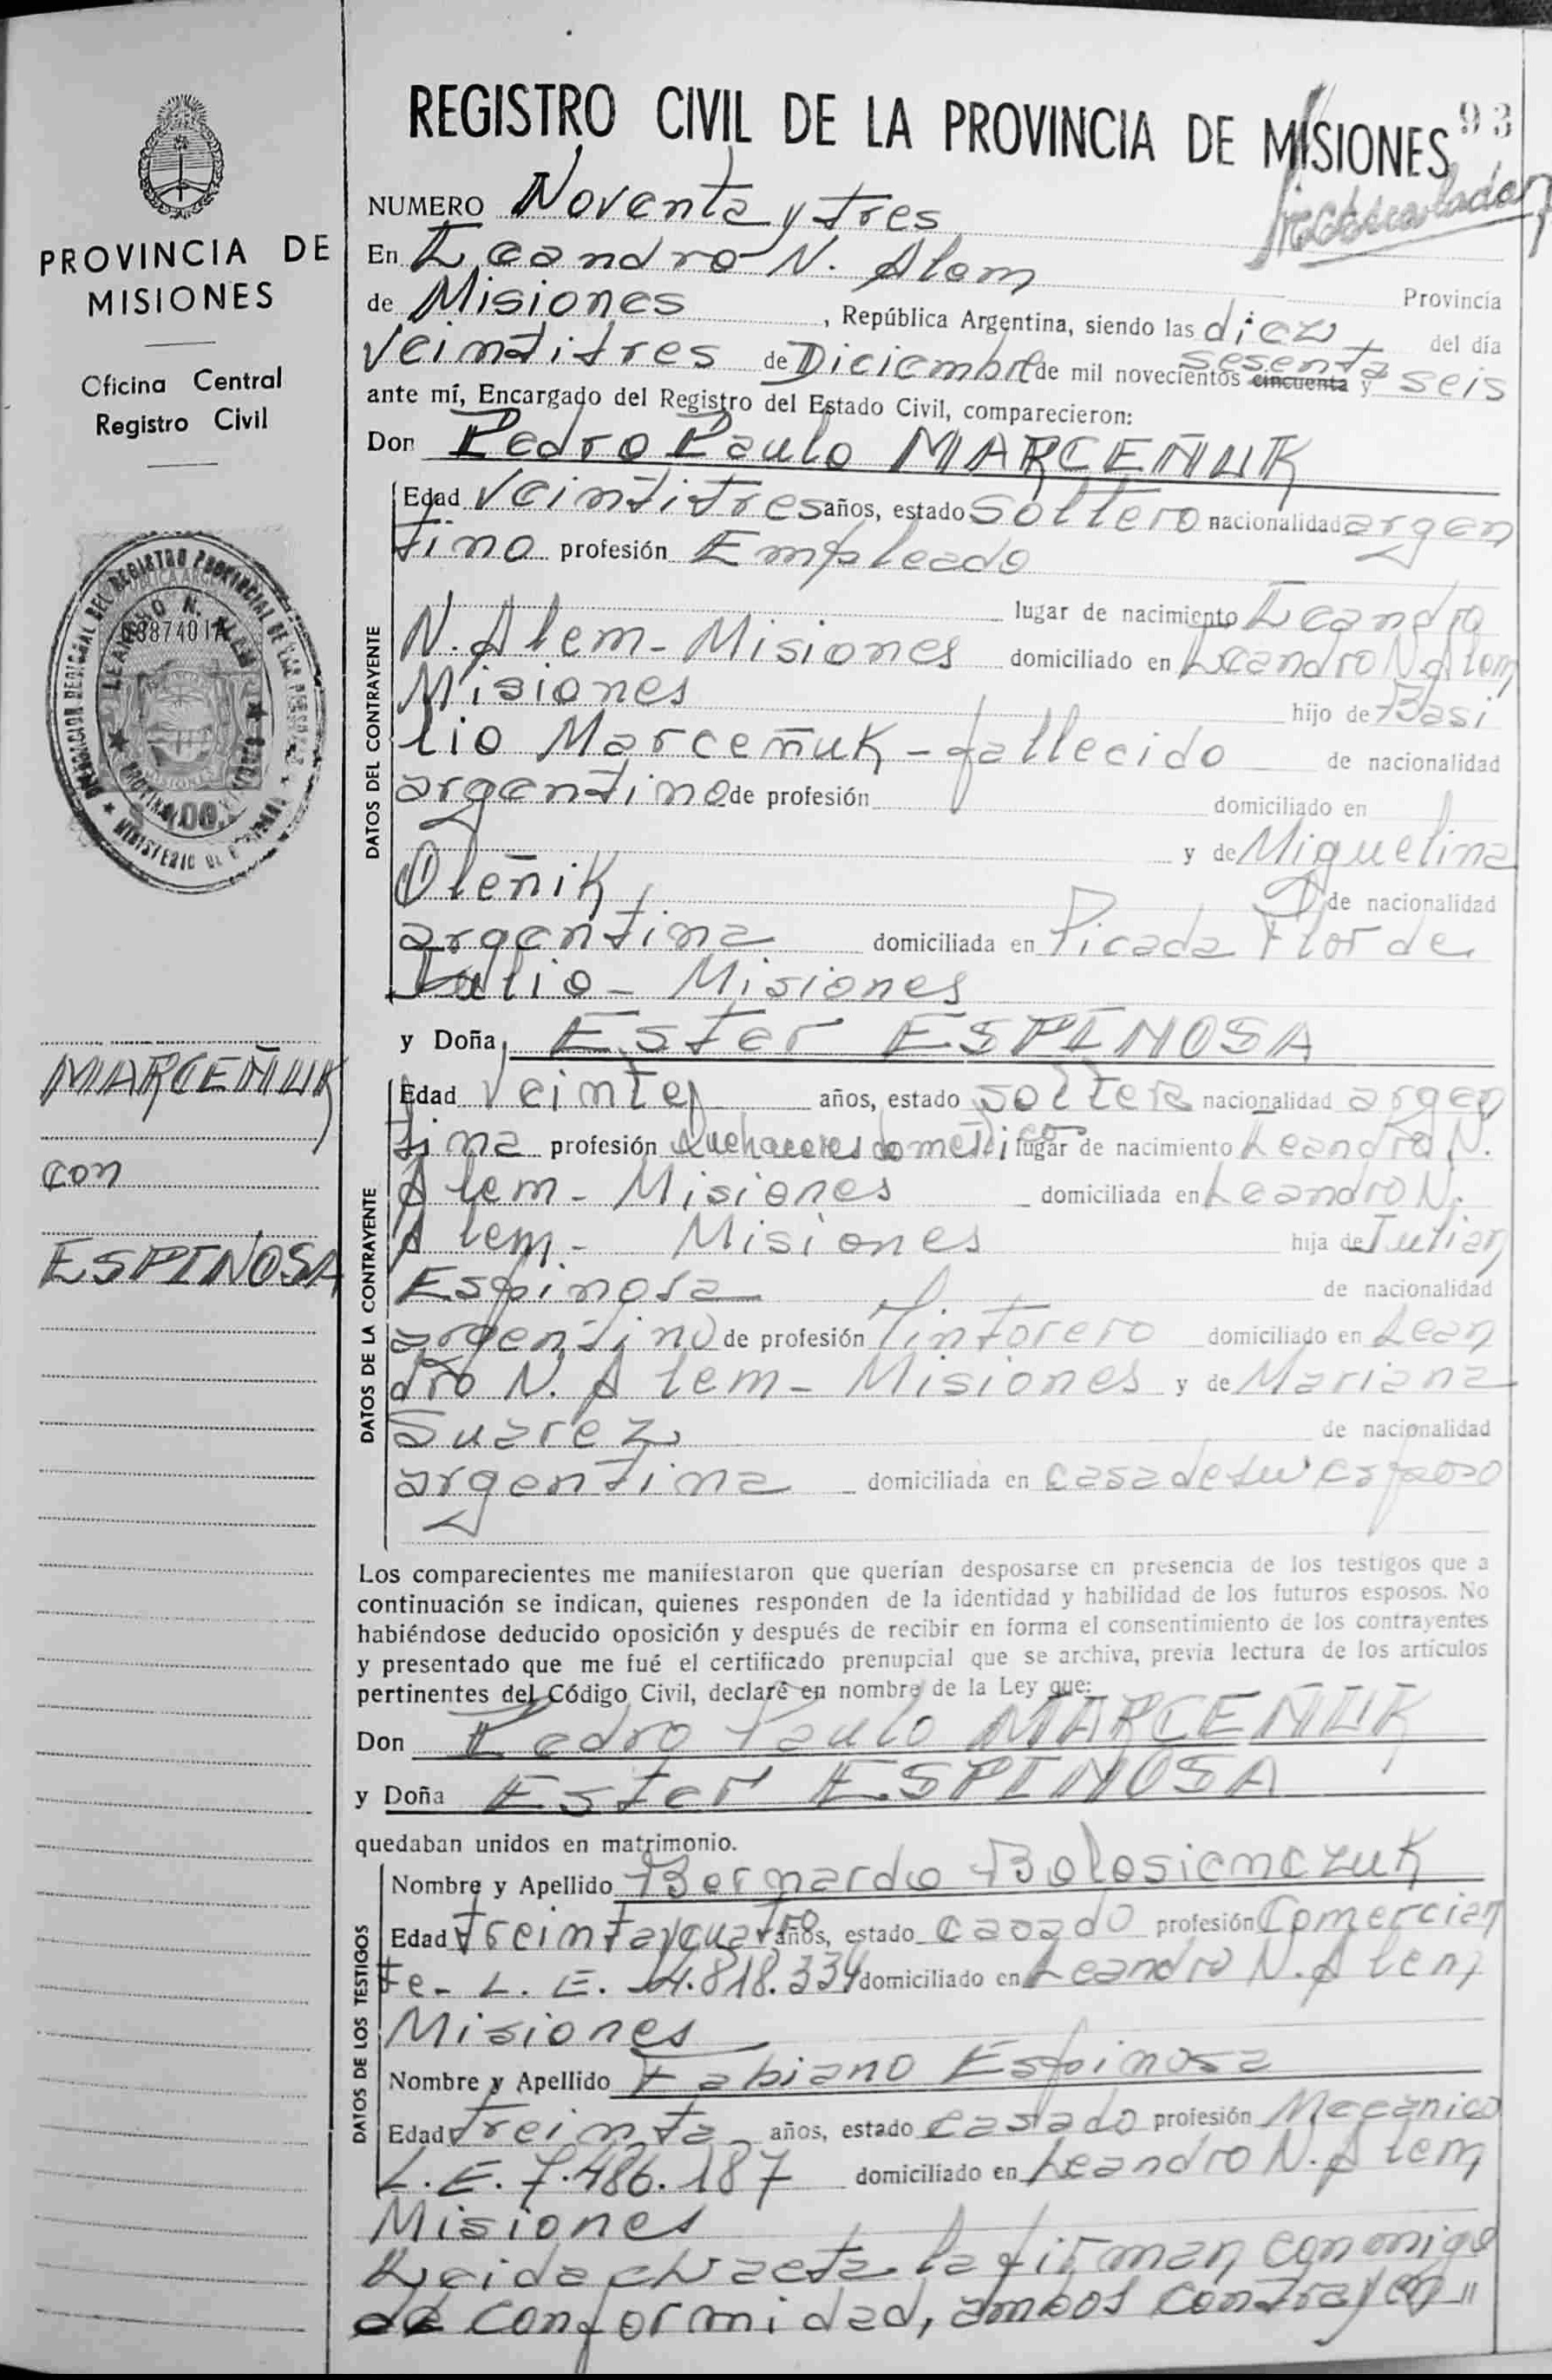 REGISTRO CIVIL DE LA PROVINCIA DE MISIONES 93
NUMERO Noventa y tres
En Leandro N. Alem Provincia
de Misiones, República Argentina, siendo las diez del día
Veintitres de Diciembre de mil novecientos cincuenta sesenta y seis
ante mí, Encargado del Registro del Estado Civil, comparecieron:
Don Pedro Paulo MARCEÑUK
DATOS DEL CONTRAYENTE
Edad Veintitres años, estado Soltero nacionalidad argen
tino profesión Empleado
lugar de nacimiento Leandro
N. Alem - Misiones domiciliado en Leandro N. Alem
Misiones hijo de Basi
lio Marceñuk - fallecido de nacionalidad
argentino de profesión domiciliado en
y de Miguelina
Oleñik de nacionalidad
argentina domiciliada en Picada Flor de
Julio - Misiones
y Doña Ester ESPINOSA
DATOS DE LA CONTRAYENTE
Edad Veinte años, estado soltera nacionalidad argen
tina profesión Quehaceres domestico lugar de nacimiento Leandro N.
Alem - Misiones domiciliada en Leandro N.
Alem - Misiones hija de Julian
Espinosa de nacionalidad
argentino de profesión Tintorero domiciliado en Lean
dro N. Alem - Misiones y de Mariana
Suarez de nacionalidad
argentina domiciliada en casa de su esposo
Los comparecientes me manifestaron que querían desposarse en presencia de los testigos que a
continuación se indican, quienes responden de la identidad y habilidad de los futuros esposos. No
habiéndose deducido oposición y después de recibir en forma el consentimiento de los contrayentes
y presentado que me fué el certificado prenupcial que se archiva, previa lectura de los artículos
pertinentes del Código Civil, declaré en nombre de la Ley que:
Don Pedro Paulo MARCEÑUK
y Doña Ester ESPINOSA
quedaban unidos en matrimonio.
DATOS DE LOS TESTIGOS
Nombre y Apellido Bernardo Bolosienczuk
Edad treinta y cuatro años, estado casado profesión Comercian
te - L. E. 4.818.334 domiciliado en Leandro N. Alem
Misiones
Nombre y Apellido Fabiano Espinosa
Edad treinta años, estado casado profesión Mecánico
L. E. 7.486.187 domiciliado en Leandro N. Alem
Misiones
Leida el acta la firman conmigo
de conformidad, ambos contrayen"
PROVINCIA DE
MISIONES
Oficina Central
Registro Civil
LEANDRO N. ALEM
MARCEÑUK
con
ESPINOSA